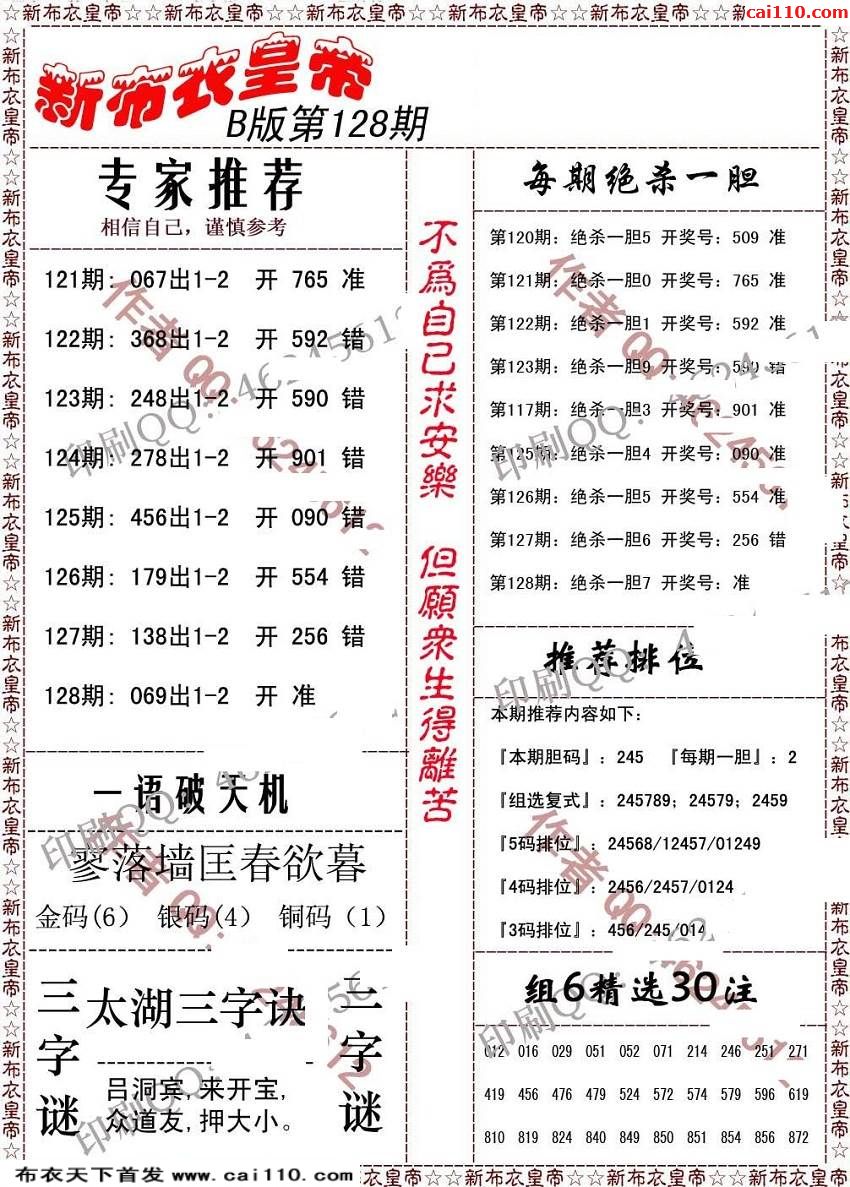 新布衣皇帝☆☆新布衣皇帝☆☆新布衣皇帝☆☆新布衣皇帝☆☆新布衣皇帝☆☆新布衣皇帝☆☆
cai110.com
新布衣皇帝
B版第128期
专家推荐
相信自己，谨慎参考
121期: 067出1-2 开 765 准
122期: 368出1-2 开 592 错
123期: 248出1-2 开 590 错
124期: 278出1-2 开 901 错
125期: 456出1-2 开 090 错
126期: 179出1-2 开 554 错
127期: 138出1-2 开 256 错
128期: 069出1-2 开 准
一语破天机
寥落墙匡春欲暮
金码(6) 银码(4) 铜码(1)
三字谜
太湖三字诀
吕洞宾,来开宝,
众道友,押大小。
二字谜
不爲自己求安樂 但願衆生得離苦
每期绝杀一胆
第120期: 绝杀一胆5 开奖号: 509 准
第121期: 绝杀一胆0 开奖号: 765 准
第122期: 绝杀一胆1 开奖号: 592 准
第123期: 绝杀一胆9 开奖号: 590 错
第117期: 绝杀一胆3 开奖号: 901 准
第125期: 绝杀一胆4 开奖号: 090 准
第126期: 绝杀一胆5 开奖号: 554 准
第127期: 绝杀一胆6 开奖号: 256 错
第128期: 绝杀一胆7 开奖号: 准
推荐排位
本期推荐内容如下:
『本期胆码』: 245 『每期一胆』: 2
『组选复式』: 245789; 24579; 2459
『5码排位』: 24568/12457/01249
『4码排位』: 2456/2457/0124
『3码排位』: 456/245/014
组6精选30注
012 016 029 051 052 071 214 246 251 271
419 456 476 479 524 572 574 579 596 619
810 819 824 840 849 850 851 854 856 872
布衣天下首发 www.cai110.com